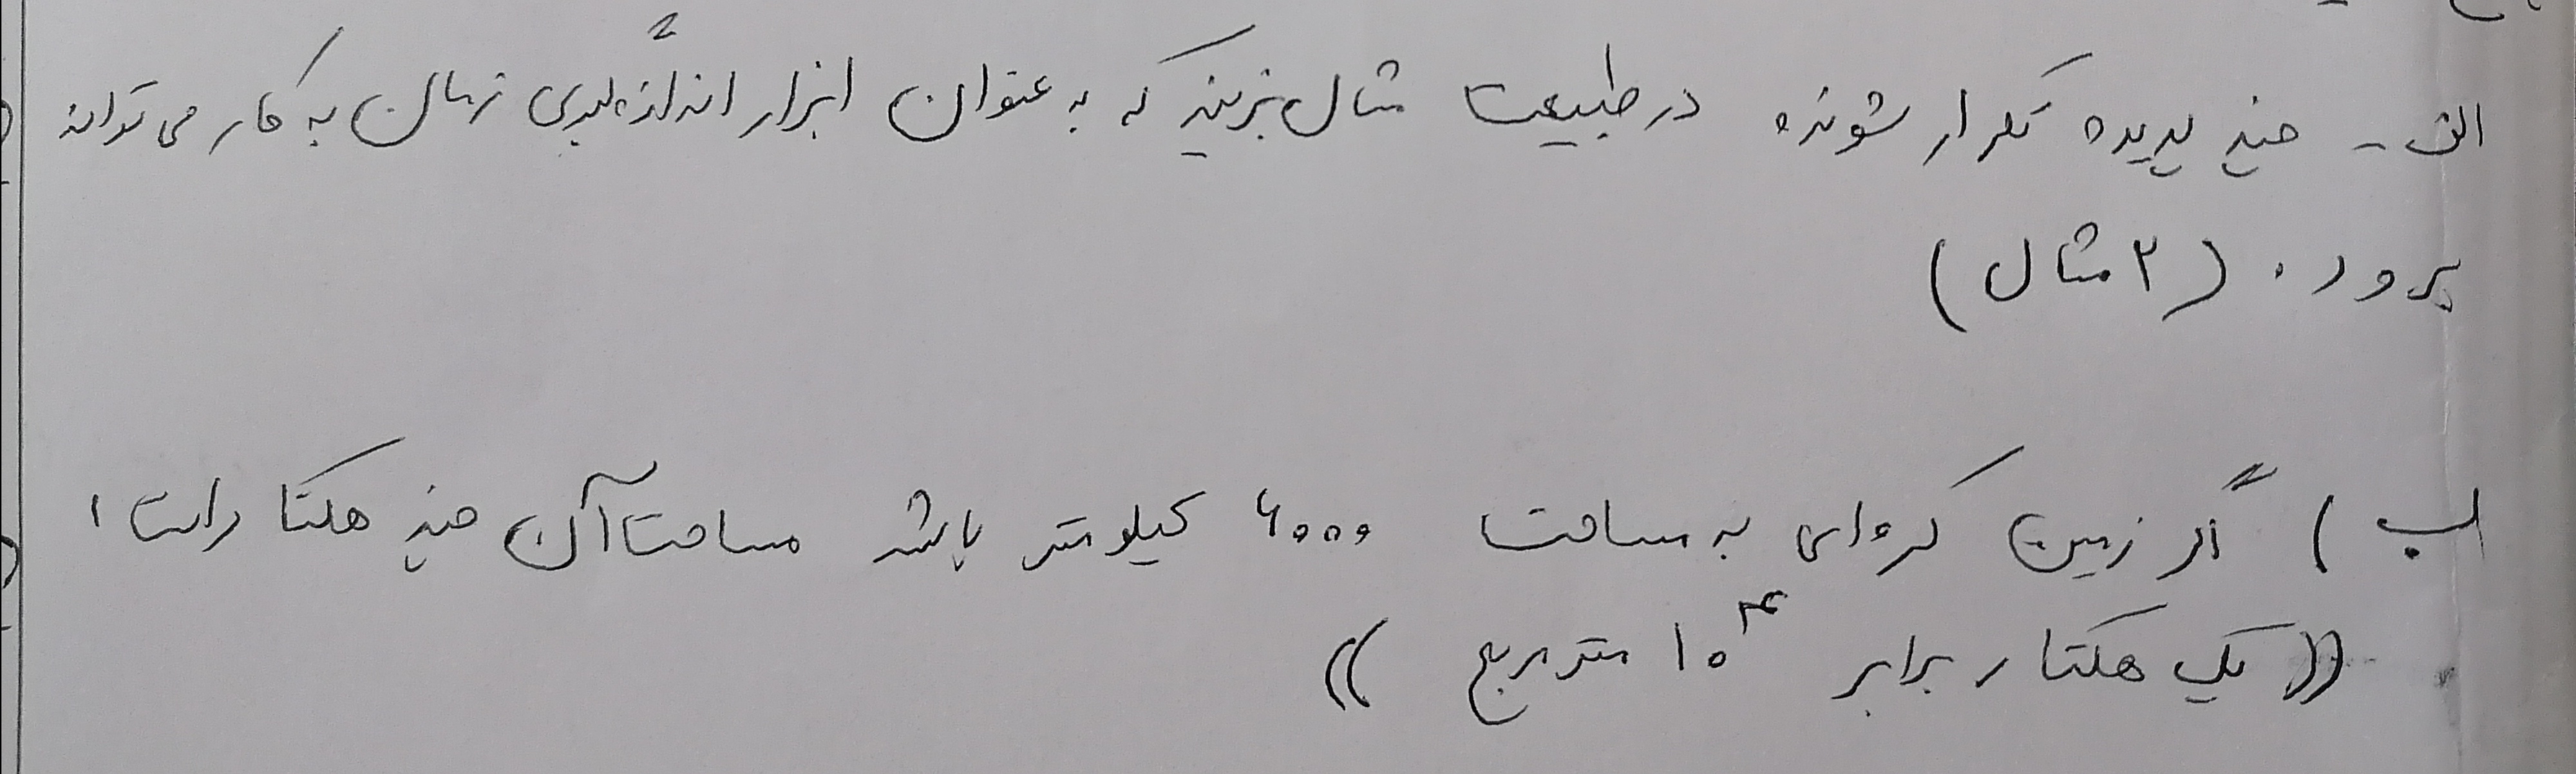 الف - چند پدیده تکرار شونده در طبیعت مثال بزنید که به عنوان ابزار اندازه‌گیری زمان به کار می‌تواند
برود . (۲ مثال)
ب ) اگر زمین کره‌ای به مساحت ۶۰۰۰ کیلومتر باشد مساحت آن چند هکتار است ؟
(( یک هکتار برابر ۱۰^۴ متر مربع ))